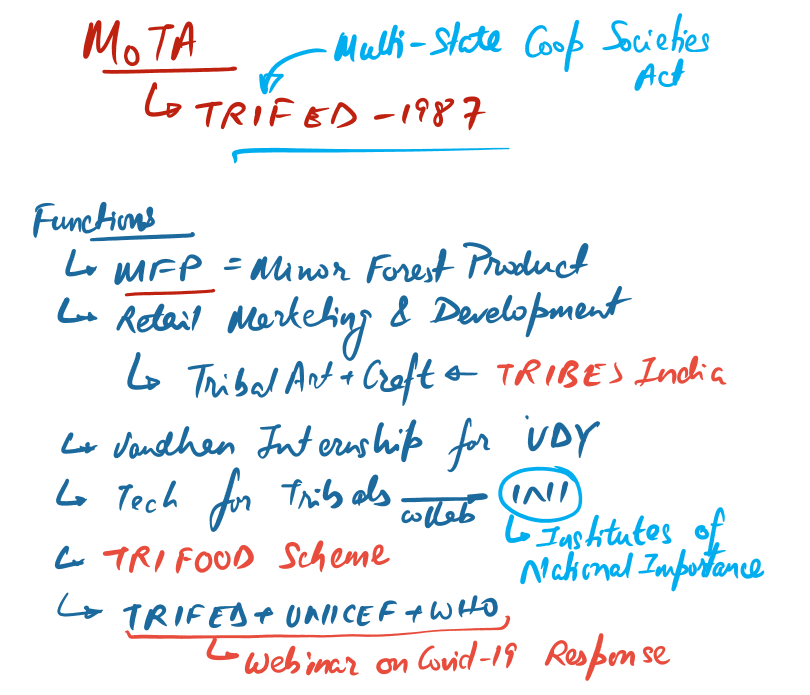 MoTA
Multi-State Coop Societies
Act
TRIFED - 1987
Functions
MFP = Minor Forest Product
Retail Marketing & Development
Tribal Art + Craft ← TRIBES India
Vandhan Internship for VDY
Tech for Tribals collab INI
Institutes of
National Importance
TRIFOOD Scheme
TRIFED + UNICEF + WHO
Webinar on Covid-19 Response